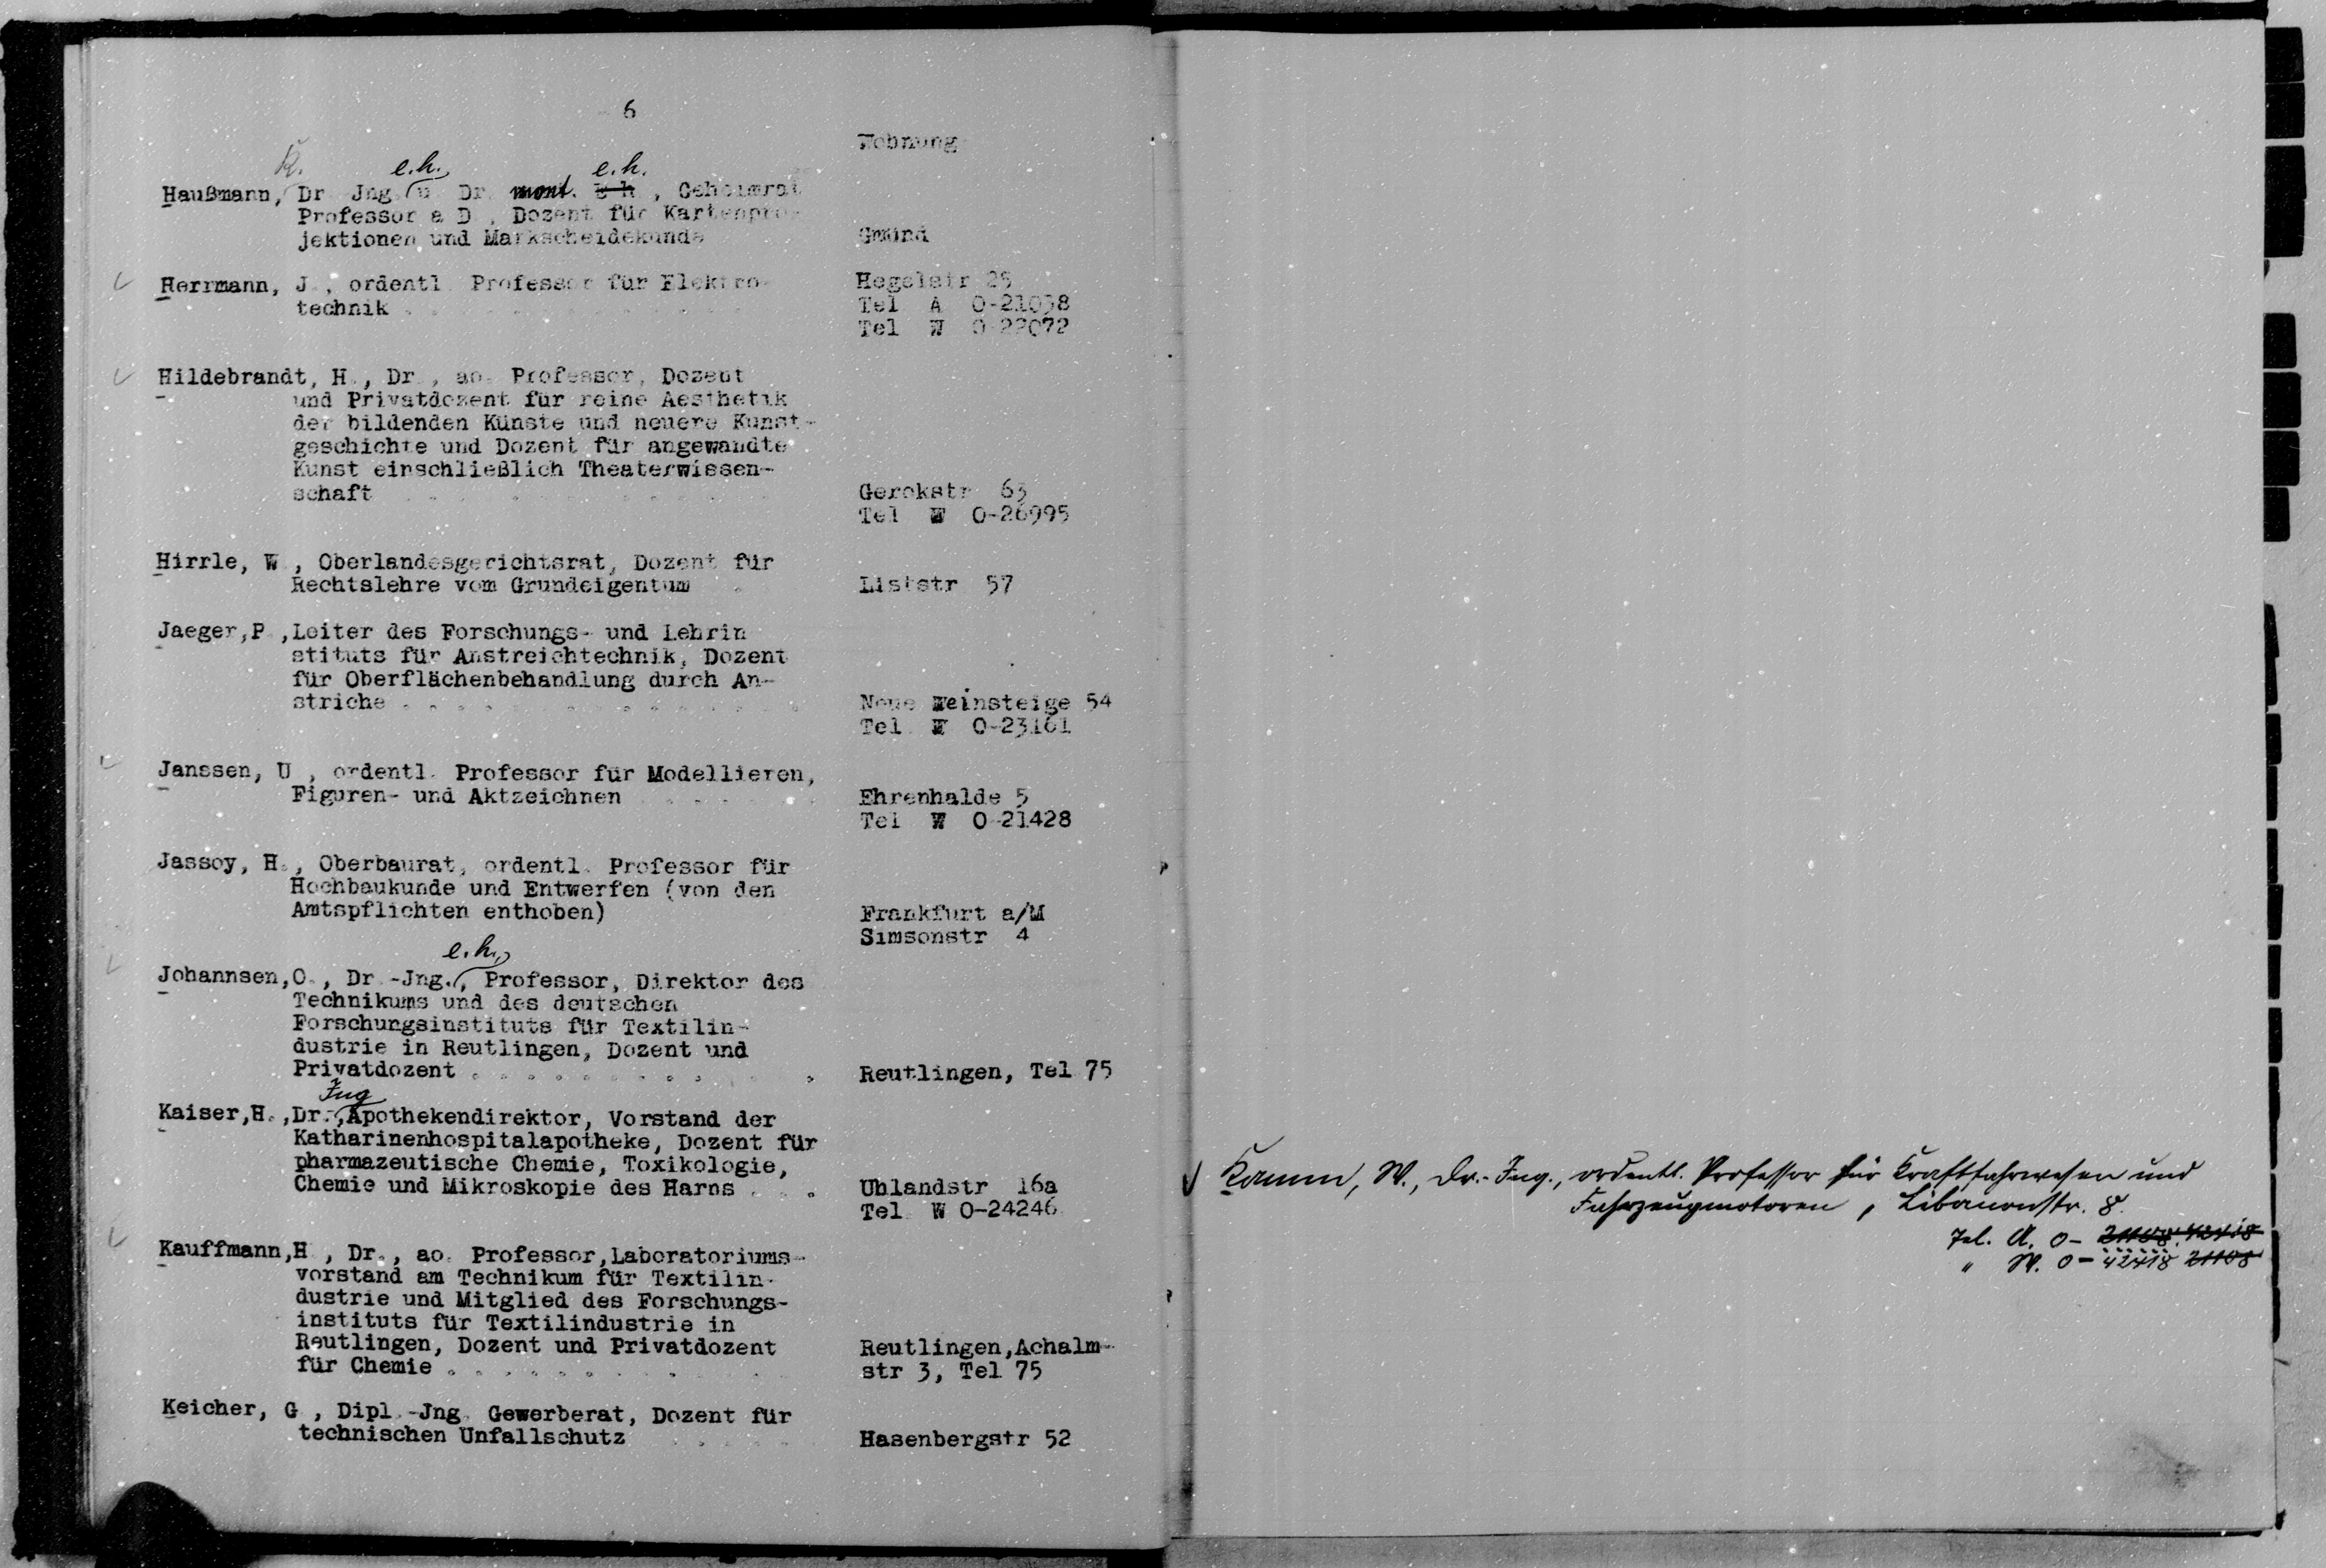 6
Wohnung
K. e.h. e.h.
Haußmann, Dr Jng. u Dr. mont. E h , Geheimrat
Professor a D , Dozent für Kartenpro-
jektionen und Markscheidekunde Gmünd
Herrmann, J., ordentl. Professor für Elektro- Hegelstr 25
technik . . . . . . . . . . . . Tel A 0-21038
Tel W 0-22072
Hildebrandt, H., Dr., ao. Professor, Dozent
und Privatdozent für reine Aesthetik
der bildenden Künste und neuere Kunst-
geschichte und Dozent für angewandte
Kunst einschließlich Theaterwissen-
schaft . . . . . . . . . . . . . Gerokstr 63
Tel W 0-26995
Hirrle, W , Oberlandesgerichtsrat, Dozent für
Rechtslehre vom Grundeigentum . Liststr 57
Jaeger,P.,Leiter des Forschungs- und Lehrin
stituts für Anstreichtechnik, Dozent
für Oberflächenbehandlung durch An-
striche . . . . . . . . . . . . . . Neue Weinsteige 54
Tel. W 0-23161
Janssen, U , ordentl. Professor für Modellieren,
Figuren- und Aktzeichnen . . . . . . . Ehrenhalde 5
Tel W 0-21428
Jassoy, H., Oberbaurat, ordentl. Professor für
Hochbaukunde und Entwerfen (von den
Amtspflichten enthoben) Frankfurt a/M
Simsonstr 4
e.h.,
Johannsen,O., Dr.-Jng., Professor, Direktor des
Technikums und des deutschen
Forschungsinstituts für Textilin-
dustrie in Reutlingen, Dozent und
Privatdozent . . . . . . . . . . . . Reutlingen, Tel 75
Ing
Kaiser,H.,Dr.-,Apothekendirektor, Vorstand der
Katharinenhospitalapotheke, Dozent für
pharmazeutische Chemie, Toxikologie,
Chemie und Mikroskopie des Harns . . . Uhlandstr 16a
Tel. W 0-24246
Kamm, W., Dr.-Ing., ordentl. Professor für Kraftfahrwesen und
Fahrzeugmotoren, Libanonstr. 8.
Tel. A. 0- 21108 42418
" W. 0- 42418 21108
Kauffmann,H , Dr., ao. Professor,Laboratoriums-
vorstand am Technikum für Textilin-
dustrie und Mitglied des Forschungs-
instituts für Textilindustrie in
Reutlingen, Dozent und Privatdozent Reutlingen,Achalm-
für Chemie . . . . . . . . . . . . str 3, Tel 75
Keicher, G , Dipl.-Jng. Gewerberat, Dozent für
technischen Unfallschutz . . . . . Hasenbergstr 52